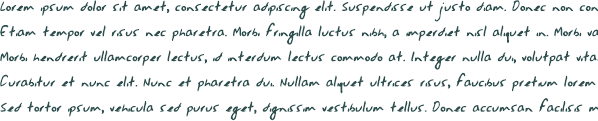 Lorem ipsum dolor sit amet, consectetur adipiscing elit. Suspendisse ut justo diam. Donec non con
Etiam tempor vel risus nec pharetra. Morbi fringilla luctus nibh, a imperdiet nisl aliquet in. Morbi va
Morbi hendrerit ullamcorper lectus, id interdum lectus commodo at. Integer nulla dui, volutpat vita
Curabitur et nunc elit. Nunc et pharetra dui. Nullam aliquet ultrices risus, faucibus pretium lorem
Sed tortor ipsum, vehicula sed purus eget, dignissim vestibulum tellus. Donec accumsan facilisis m